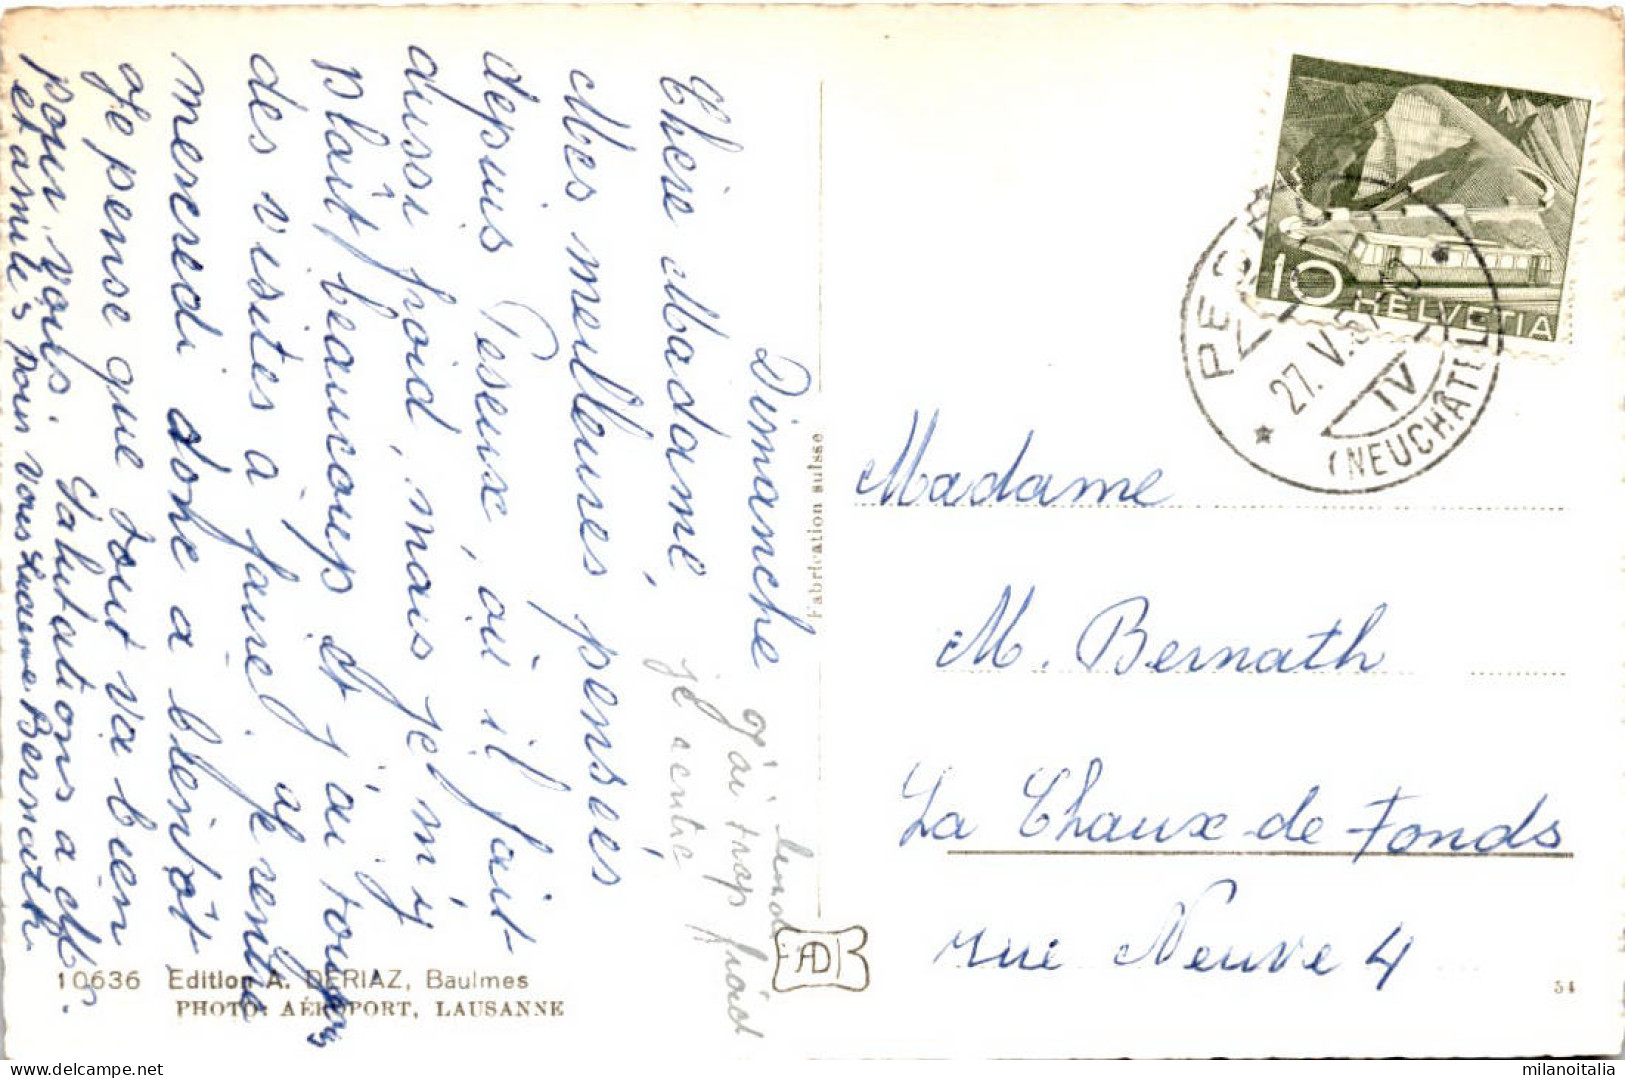 Dimanche
Chère Madame,
Mes meilleures pensées
depuis Peseux, où il fait
aussi froid, mais je m'y
plaît beaucoup et j'ai toujours
des visites à faire. Je rentre
mercredi donc à bientôt
Je pense que tout va bien
pour vous. Salutations à M. B.
et amitiés pour vous Bernath
lundi
J'ai trop froid
je rentre
Madame
M. Bernath
La Chaux-de-Fonds
rue Neuve 4
10 HELVETIA
27. V. 57
IV
(NEUCHÂTEL)
Fabrication suisse
10636 Edition A. DERIAZ, Baulmes
PHOTO: AÉROPORT, LAUSANNE
AD
54
milanoitalia